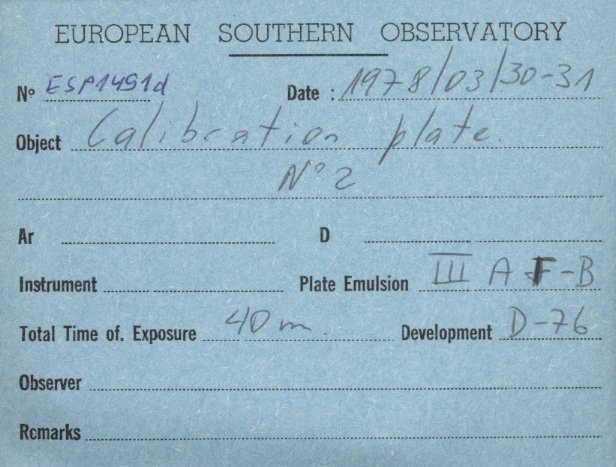 EUROPEAN SOUTHERN OBSERVATORY
Nº ESP1491d Date : 1978/03/30-31
Object Calibration plate.
Nº 2
Ar D
Instrument Plate Emulsion III A F-B
Total Time of. Exposure 40 m. Development D-76
Observer
Remarks